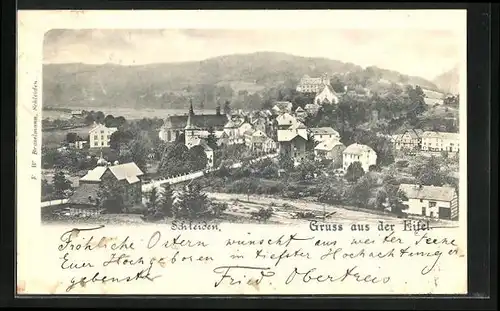 F. W. Braselmann, Schleiden
Schleiden.
Gruss aus der Eifel.
Fröhliche Ostern wünscht aus weiter Ferne
Euer Hochgeboren in tiefster Hochachtung
gebenste Fried Obertreis